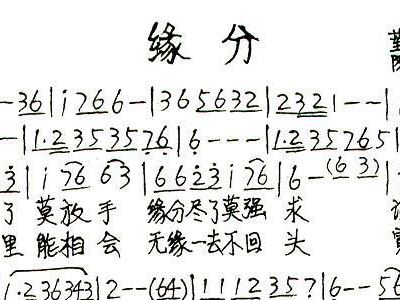 缘分
--36|i766-|365632|2321--|
--|1.2353576|6---|1.235765|
3|i7663|6623i76|6-(63)|
了莫放手 缘分尽了莫强求
里能相会 无缘一去不回头
1.236343|2--(64)|1112357|6--56